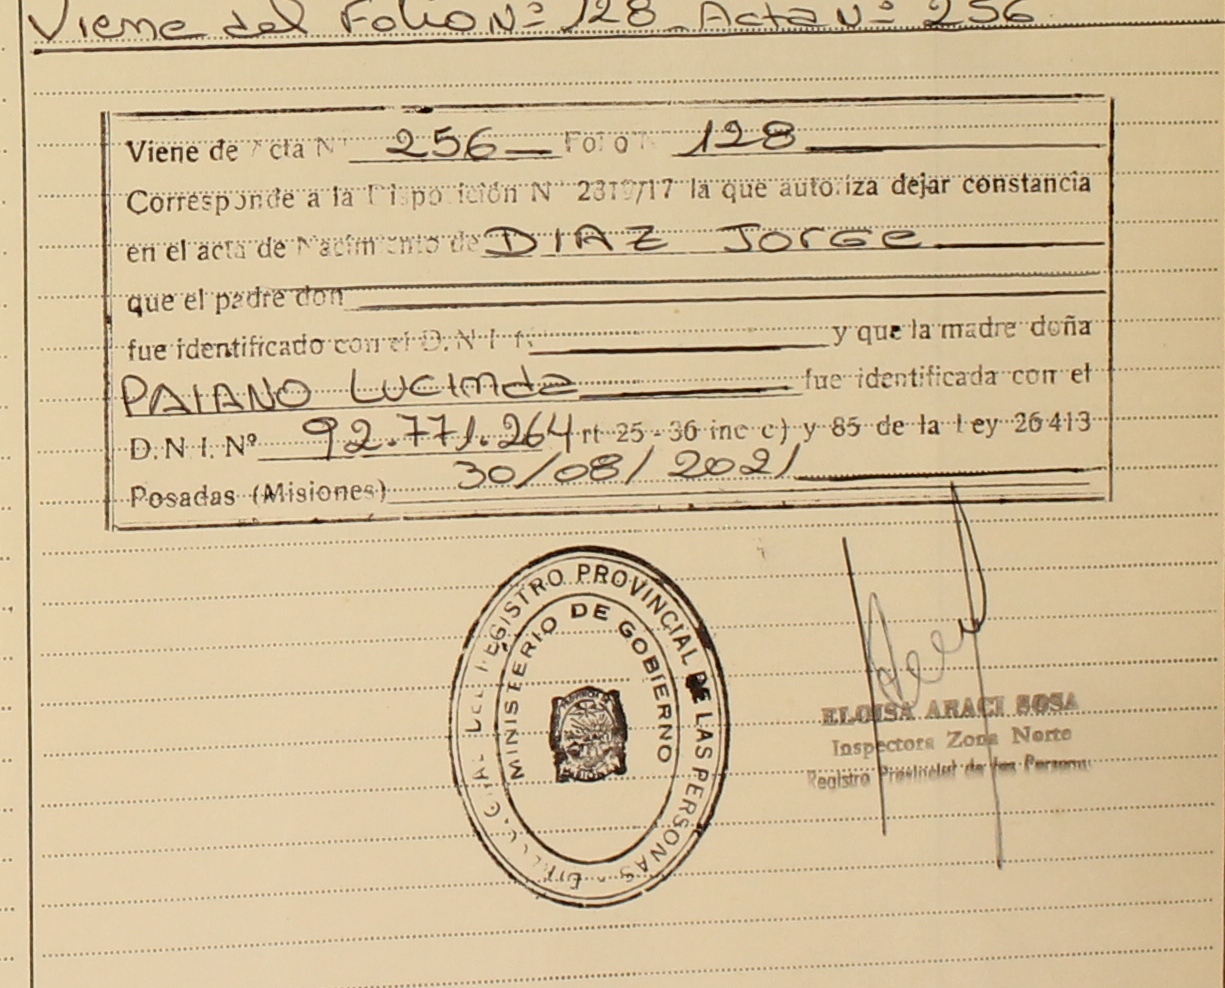 Viene del Folio Nº 128 Acta Nº 256
Viene de Acta Nº 256 Folio Nº 128
Corresponde a la Disposición Nº 2319/17 la que autoriza dejar constancia
en el acta de Nacimiento de DIAZ JORGE
que el padre don
fue identificado con el D.N.I. Nº y que la madre doña
PAIANO LUCINDA fue identificada con el
D.N.I. Nº 92.771.264 rt 25-36 inc c) y 85 de la Ley 26413
Posadas (Misiones) 30/08/2021
REGISTRO PROVINCIAL DE LAS PERSONAS
MINISTERIO DE GOBIERNO
ELOISA ARACI SOSA
Inspectora Zona Norte
Registro Provincial de las Personas